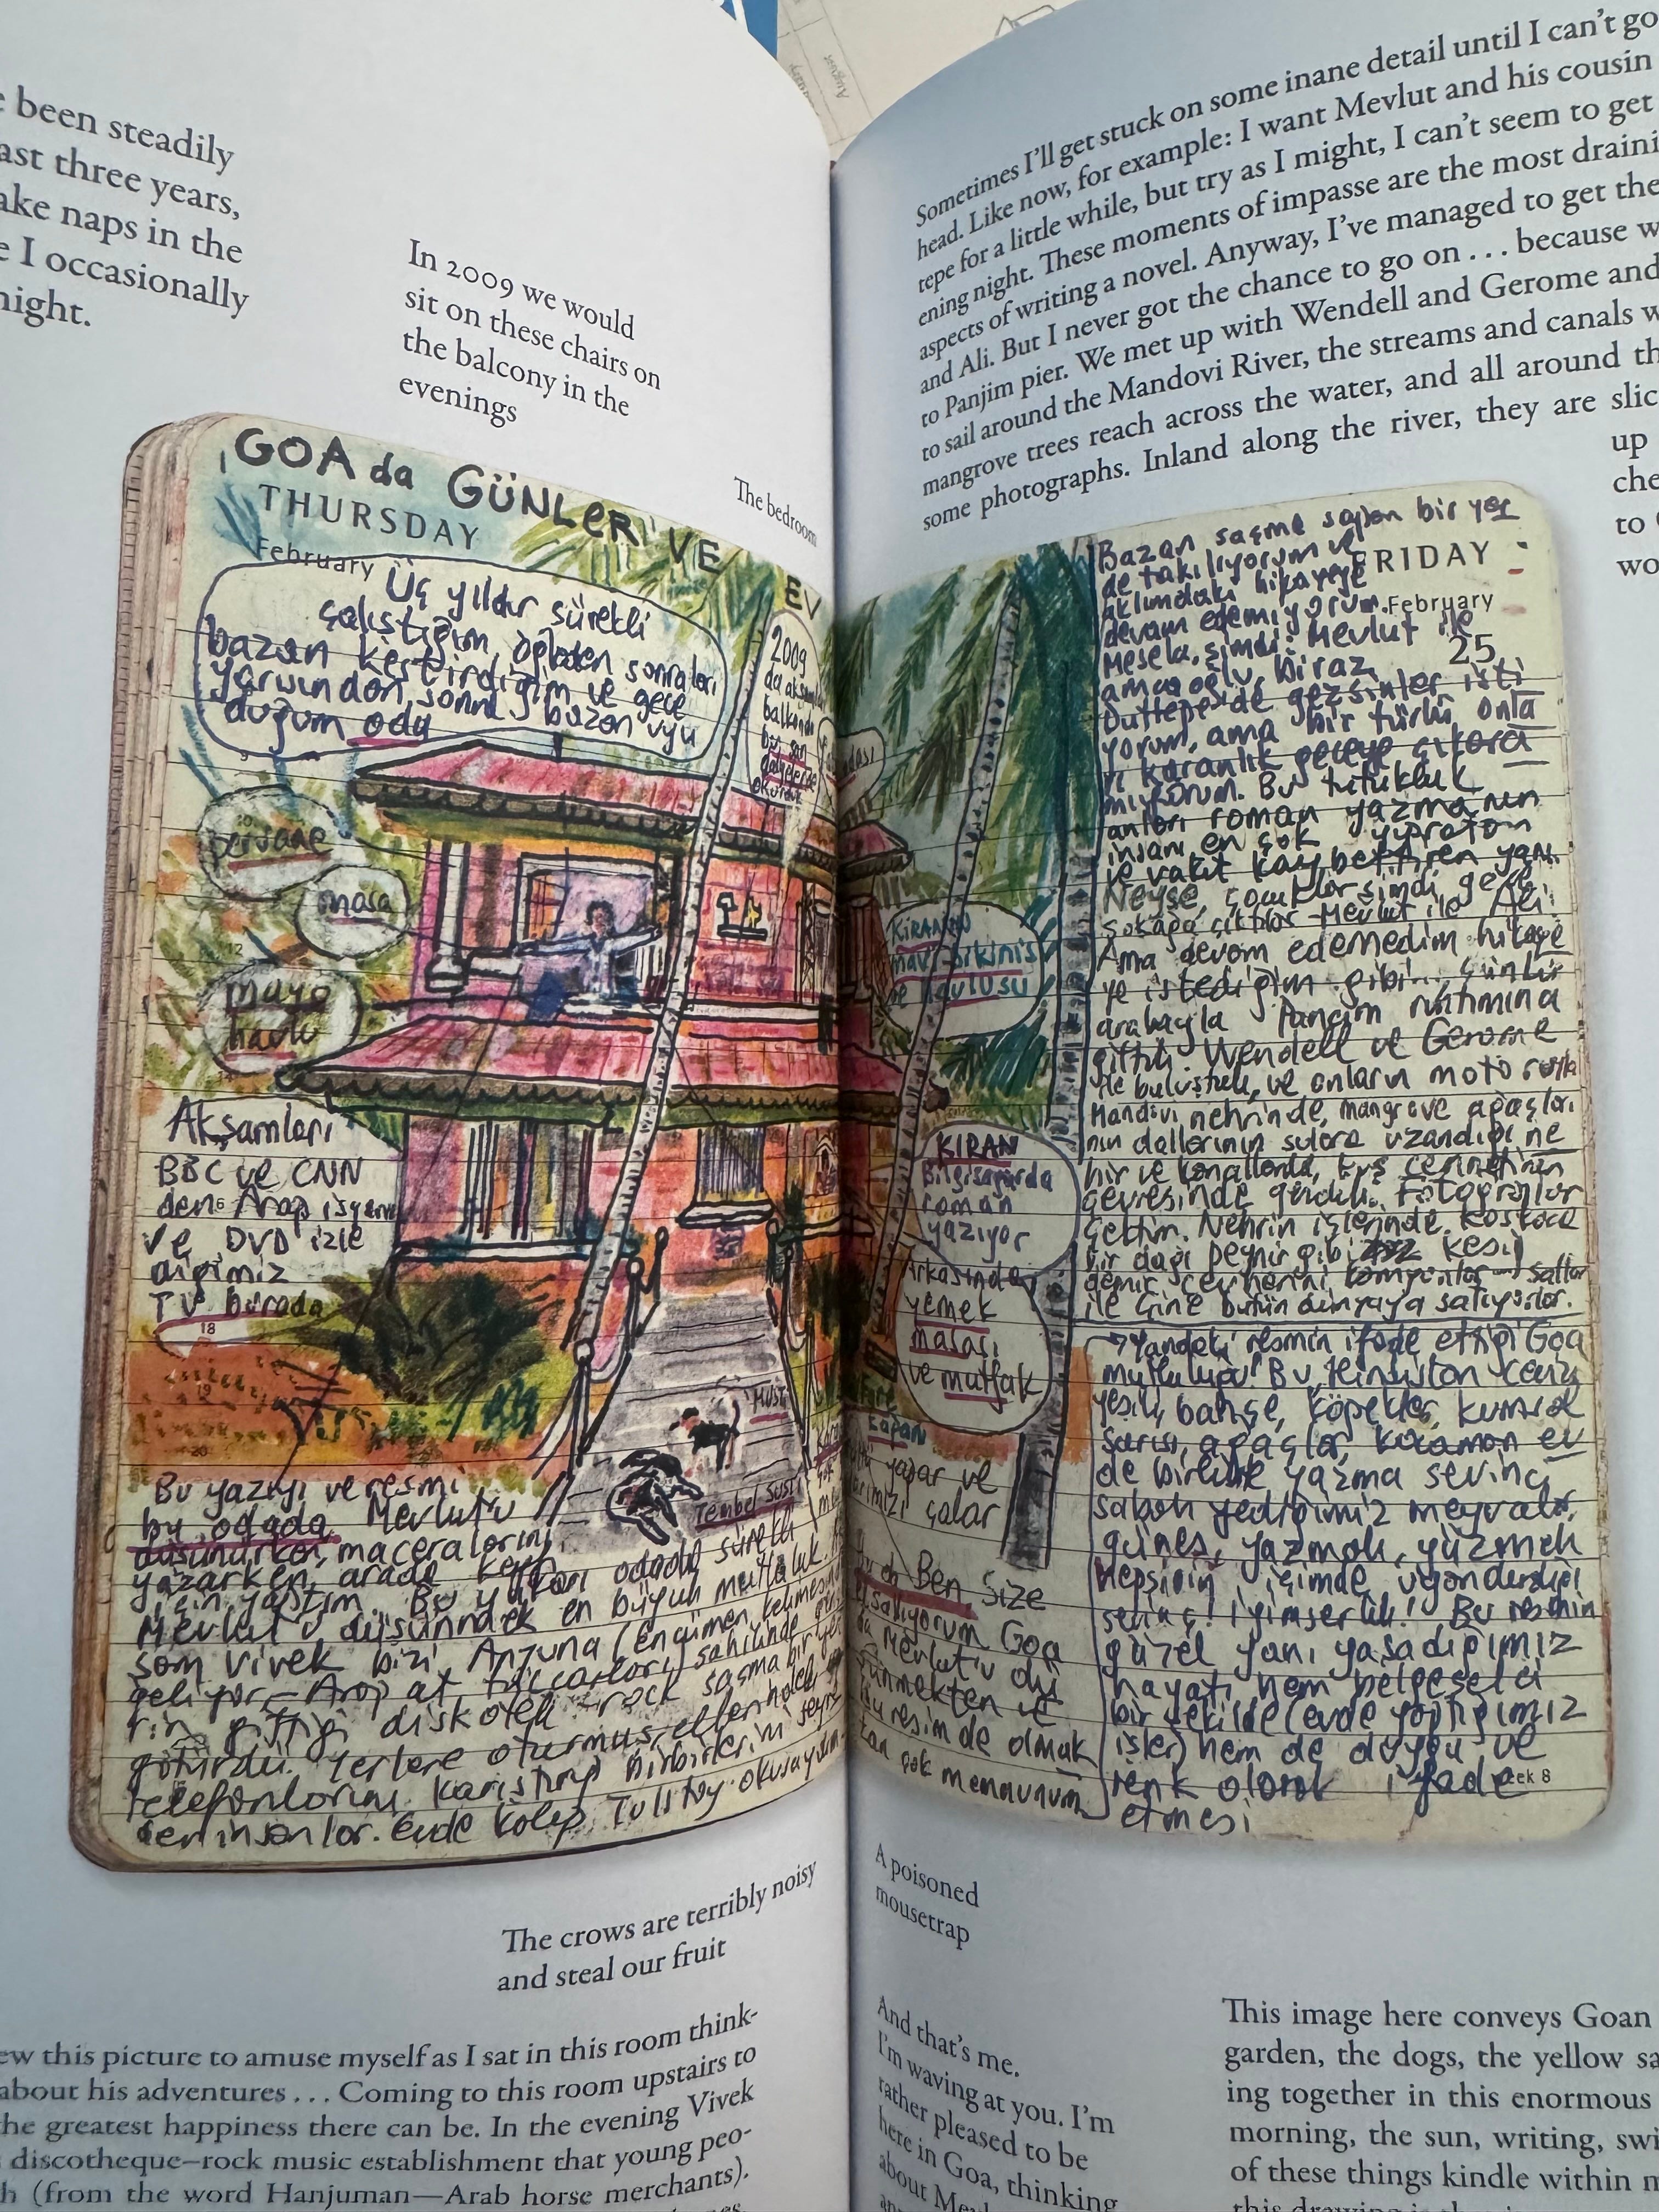 e been steadily
ast three years,
ake naps in the
e I occasionally
night.
In 2009 we would
sit on these chairs on
the balcony in the
evenings
The bedroom
GOA da GÜNLERİ VE EV
THURSDAY
February
Üç yıldır sürekli
çalıştığım, öğleden sonraları
bazan kestirdiğim ve gece
yarısından sonra bazan uyu
duğum oda
2009
da akşamları
balkonda
masa
mayo
havlu
Akşamları
BBC ve CNN
den Arap isyanı
ve DVD izle
diğimiz
TV burada
18
19
20
Tembel Susi
Bu yazıyı ve resmi
bu odada Mevlut'u
düşünürken, maceralarını
yazarken, arada keyif
için yaptım. Bu yukarı odada sürekli
Mevlut'u düşünmek en büyük mutluluk.
som Vivek bizi Anjuna (Encümen kelimesinden
geliyor—Arap at tüccarları) sahilinde
rin gittiği diskotek—rock saçma bir yere
götürdü. Yerlere oturmuş, ellerinde
telefonlarını karıştırıp birbirlerini
den insanlar. Evde kalıp Tolstoy okusaydım
Sometimes I'll get stuck on some inane detail until I can't go
head. Like now, for example: I want Mevlut and his cousin
tepe for a little while, but try as I might, I can't seem to get
ening night. These moments of impasse are the most draini
aspects of writing a novel. Anyway, I've managed to get the
and Ali. But I never got the chance to go on . . . because w
to Panjim pier. We met up with Wendell and Gerome and
to sail around the Mandovi River, the streams and canals w
mangrove trees reach across the water, and all around th
some photographs. Inland along the river, they are slic
up
che
to
wo
Bazan saçma sapan bir yer
de takılıyorum ve
FRIDAY
aklımdaki hikayeye
February
devam edemiyorum.
25
Mesela, şimdi: Mevlut ile
amcaoğlu, biraz
Duttepe'de gezsinler isti
yorum, ama bir türlü onla
rı karanlık geceye çıkara
mıyorum. Bu tutukluk
anları roman yazmanın
insanı en çok yıpratan
ve vakit kaybettiren yanı.
Neyse, çocuklar şimdi gece
sokağa çıktılar—Mevlut ile Ali.
Ama devam edemedim hikaye
ye istediğim gibi... Çünkü
arabayla Pancim rıhtımına
gittik. Wendell ve Gerome
ile buluştuk, ve onların motoruyla
Mandovi nehrinde, mangrove ağaçları
nın dallarının sulara uzandığı ne
hir ve kanallarda, kuş cennetinin
çevresinde gezdik. Fotoğraflar
çektim. Nehrin içlerinde koskoca
bir dağı peynir gibi kesip
demir cevherini kamyonlar—
ile Çine bütün dünyaya satıyorlar.
KİRAN'IN
mavi bikinisi
ve havlusu
KİRAN
Bilgisayarda
roman
yazıyor
Arkasında
yemek
masası
ve mutfak
yapar ve
çalar
Ben. Size
el sallıyorum Goa
da Mevlut'u dü
şünmekten ve
bu resimde olmak
tan çok memnunum
Yandaki resmin ifade ettiği Goa
mutluluğu! Bu Hindistan
yeşili, bahçe, köpekler, kumsal
sarısı, ağaçlar, kocaman ev
de birlikte yazma sevinci
sabah yediğimiz meyvalar,
güneş, yazmak, yüzmek
hepsinin içimde uyandırdığı
sevinç! İyimserlik! Bu resmin
güzel yanı yaşadığımız
hayatı hem belgeselci
bir şekilde (evde yaptığımız
işler) hem de duygu ve
renk olarak ifade
etmesi
eek 8
The crows are terribly noisy
and steal our fruit
A poisoned
mousetrap
ew this picture to amuse myself as I sat in this room think-
about his adventures . . . Coming to this room upstairs to
he greatest happiness there can be. In the evening Vivek
discotheque–rock music establishment that young peo-
h (from the word Hanjuman—Arab horse merchants).
And that's me.
I'm waving at you. I'm
rather pleased to be
here in Goa, thinking
about
This image here conveys Goan
garden, the dogs, the yellow sa
ing together in this enormous
morning, the sun, writing, swi
of these things kindle within m